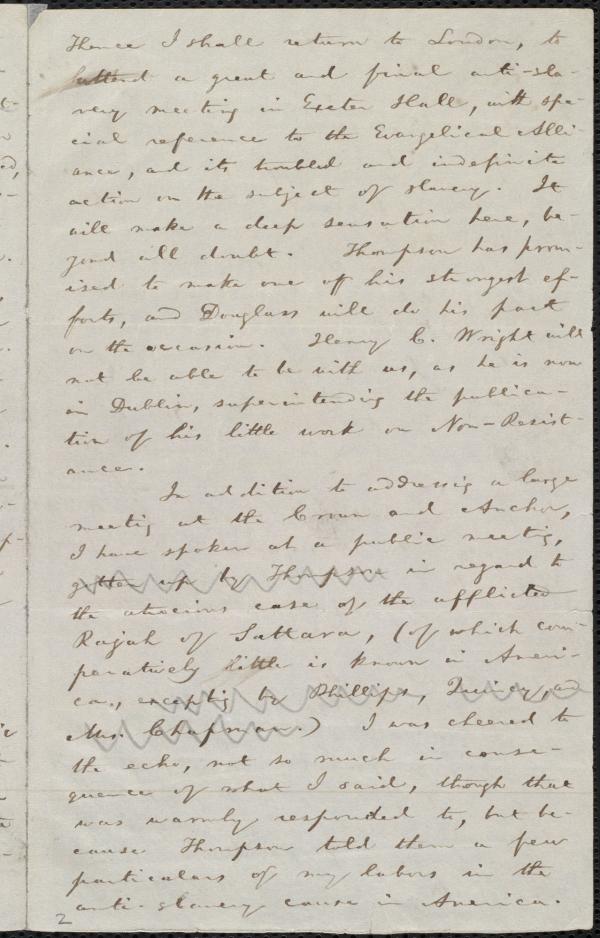 Thence I shall return to London, to
attend a great and final anti-sla-
very meeting in Exeter Hall, with spe-
cial reference to the Evangelical Alli-
ance, and its troubled and indefinite
action on the subject of slavery. It
will make a deep sensation here, be-
yond all doubt. Thompson has prom-
ised to make one of his strongest ef-
forts, and Douglass will do his part
on the occasion. Henry C. Wright will
not be able to be with us, as he is now
in Dublin, superintending the publica-
tion of his little work on Non-Resist-
ance.
In addition to addressing a large
meeting at the Crown and Anchor,
I have spoken at a public meeting,
gotten up by Thompson in regard to
the atrocious case of the afflicted
Rajah of Sattara, (of which com-
peratively little is known in Ameri-
ca, excepting by Phillips, Quincy, and
Mrs. Chapman.) I was cheered to
the echo, not so much in conse-
quence of what I said, though that
was warmly responded to, but be-
cause Thompson told them a few
particulars of my labors in the
anti-slavery cause in America.
2